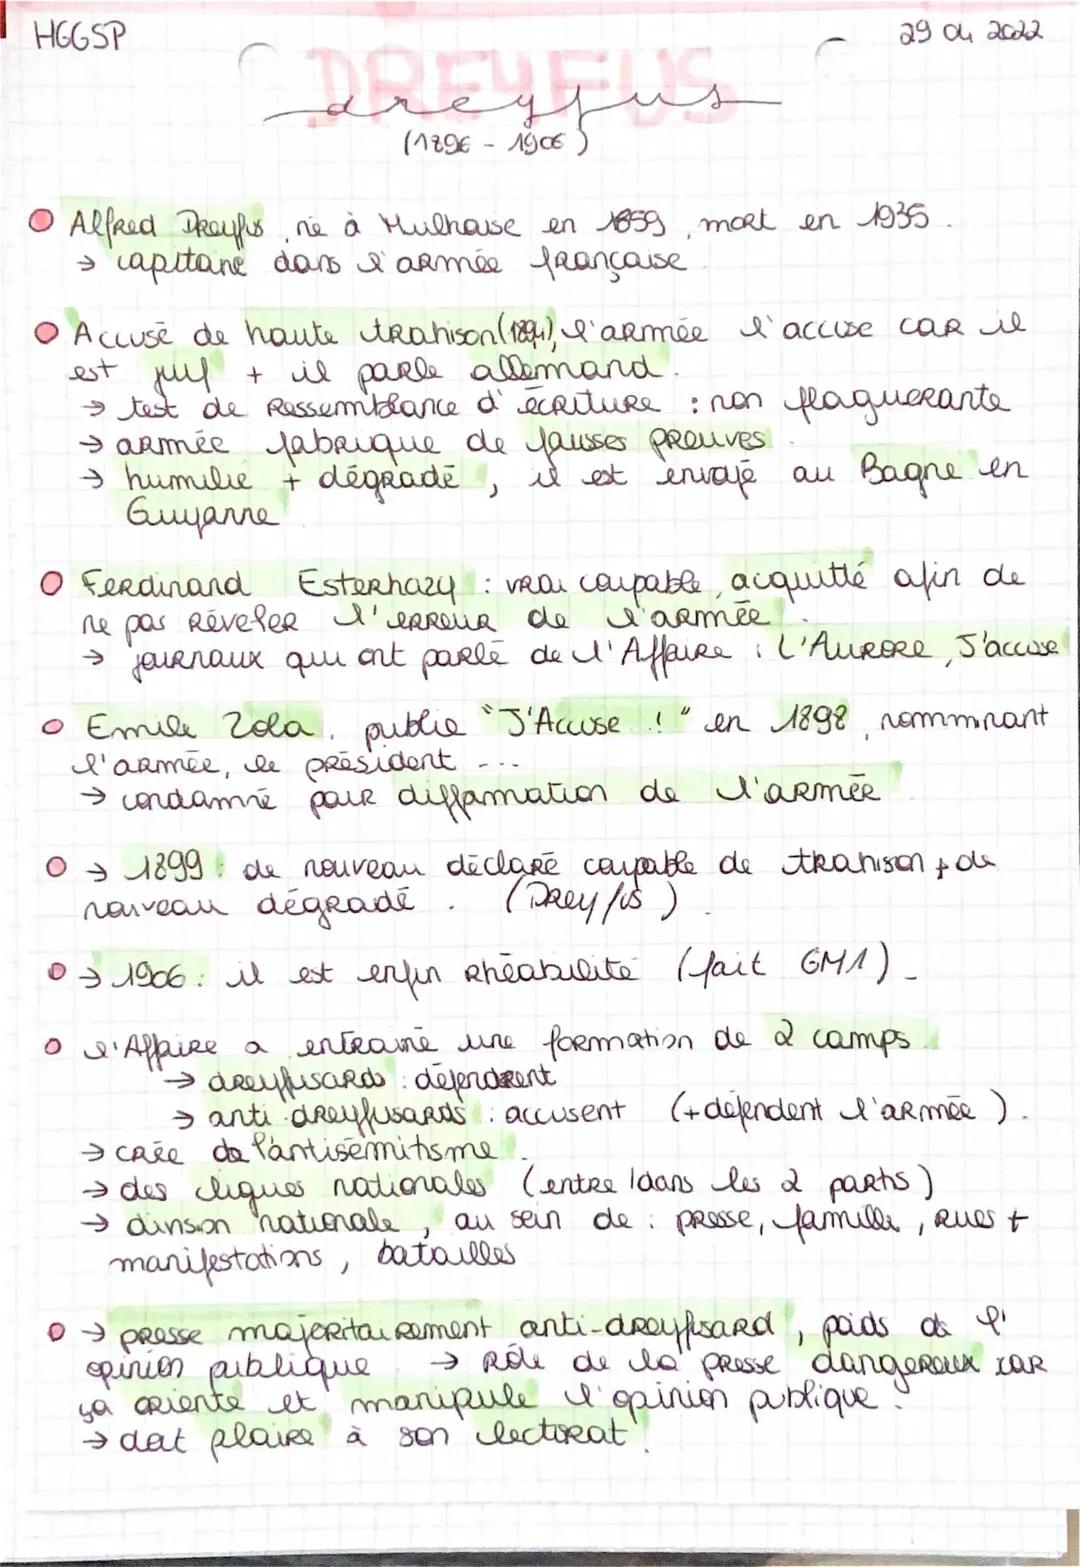 HGGSP
29 04 2022
DREYFUS
dreyfus
(1896 - 1906)
Alfred Dreyfus, né à Mulhouse en 1859, mort en 1935.
→ capitane dans l'armée française
Accusé de haute trahison (1894), l'armée l'accuse car il
est juif + il parle allemand.
→ test de ressemblance d'écriture : non flaguerante
→ armée fabrique de fausses preuves.
→ humilié + dégradé, il est envoyé au Bagne en
Guyanne.
Ferdinand Esterhazy : vrai coupable, acquitté afin de
ne pas révéler l'erreur de l'armée.
→ journaux qui ont parlé de l'Affaire : L'Aurore, J'accuse
Emile Zola, publie "J'Accuse..!" en 1898, nomminant
l'armée, le président ...
→ condamné pour diffamation de l'armée.
→ 1899 : de nouveau déclaré coupable de trahison + de
nouveau dégradé. (Dreyfus).
→ 1906 : il est enfin rhéabilité (fait GM1) -
l'Affaire a entrainé une formation de 2 camps.
→ dreyfusards : défendent
→ anti-dreyfusards : accusent (+ défendent l'armée).
→ crée de l'antisémitisme.
→ des cliques nationales (entre/dans les 2 partis)
→ division nationale, au sein de : presse, famille, rues +
manifestations, batailles
→ presse majoritairement anti-dreyfusard, poids de l'
opinion publique → Rôle de la presse dangereux car
ça oriente et manipule l'opinion publique.
→ doit plaire à son lectorat.